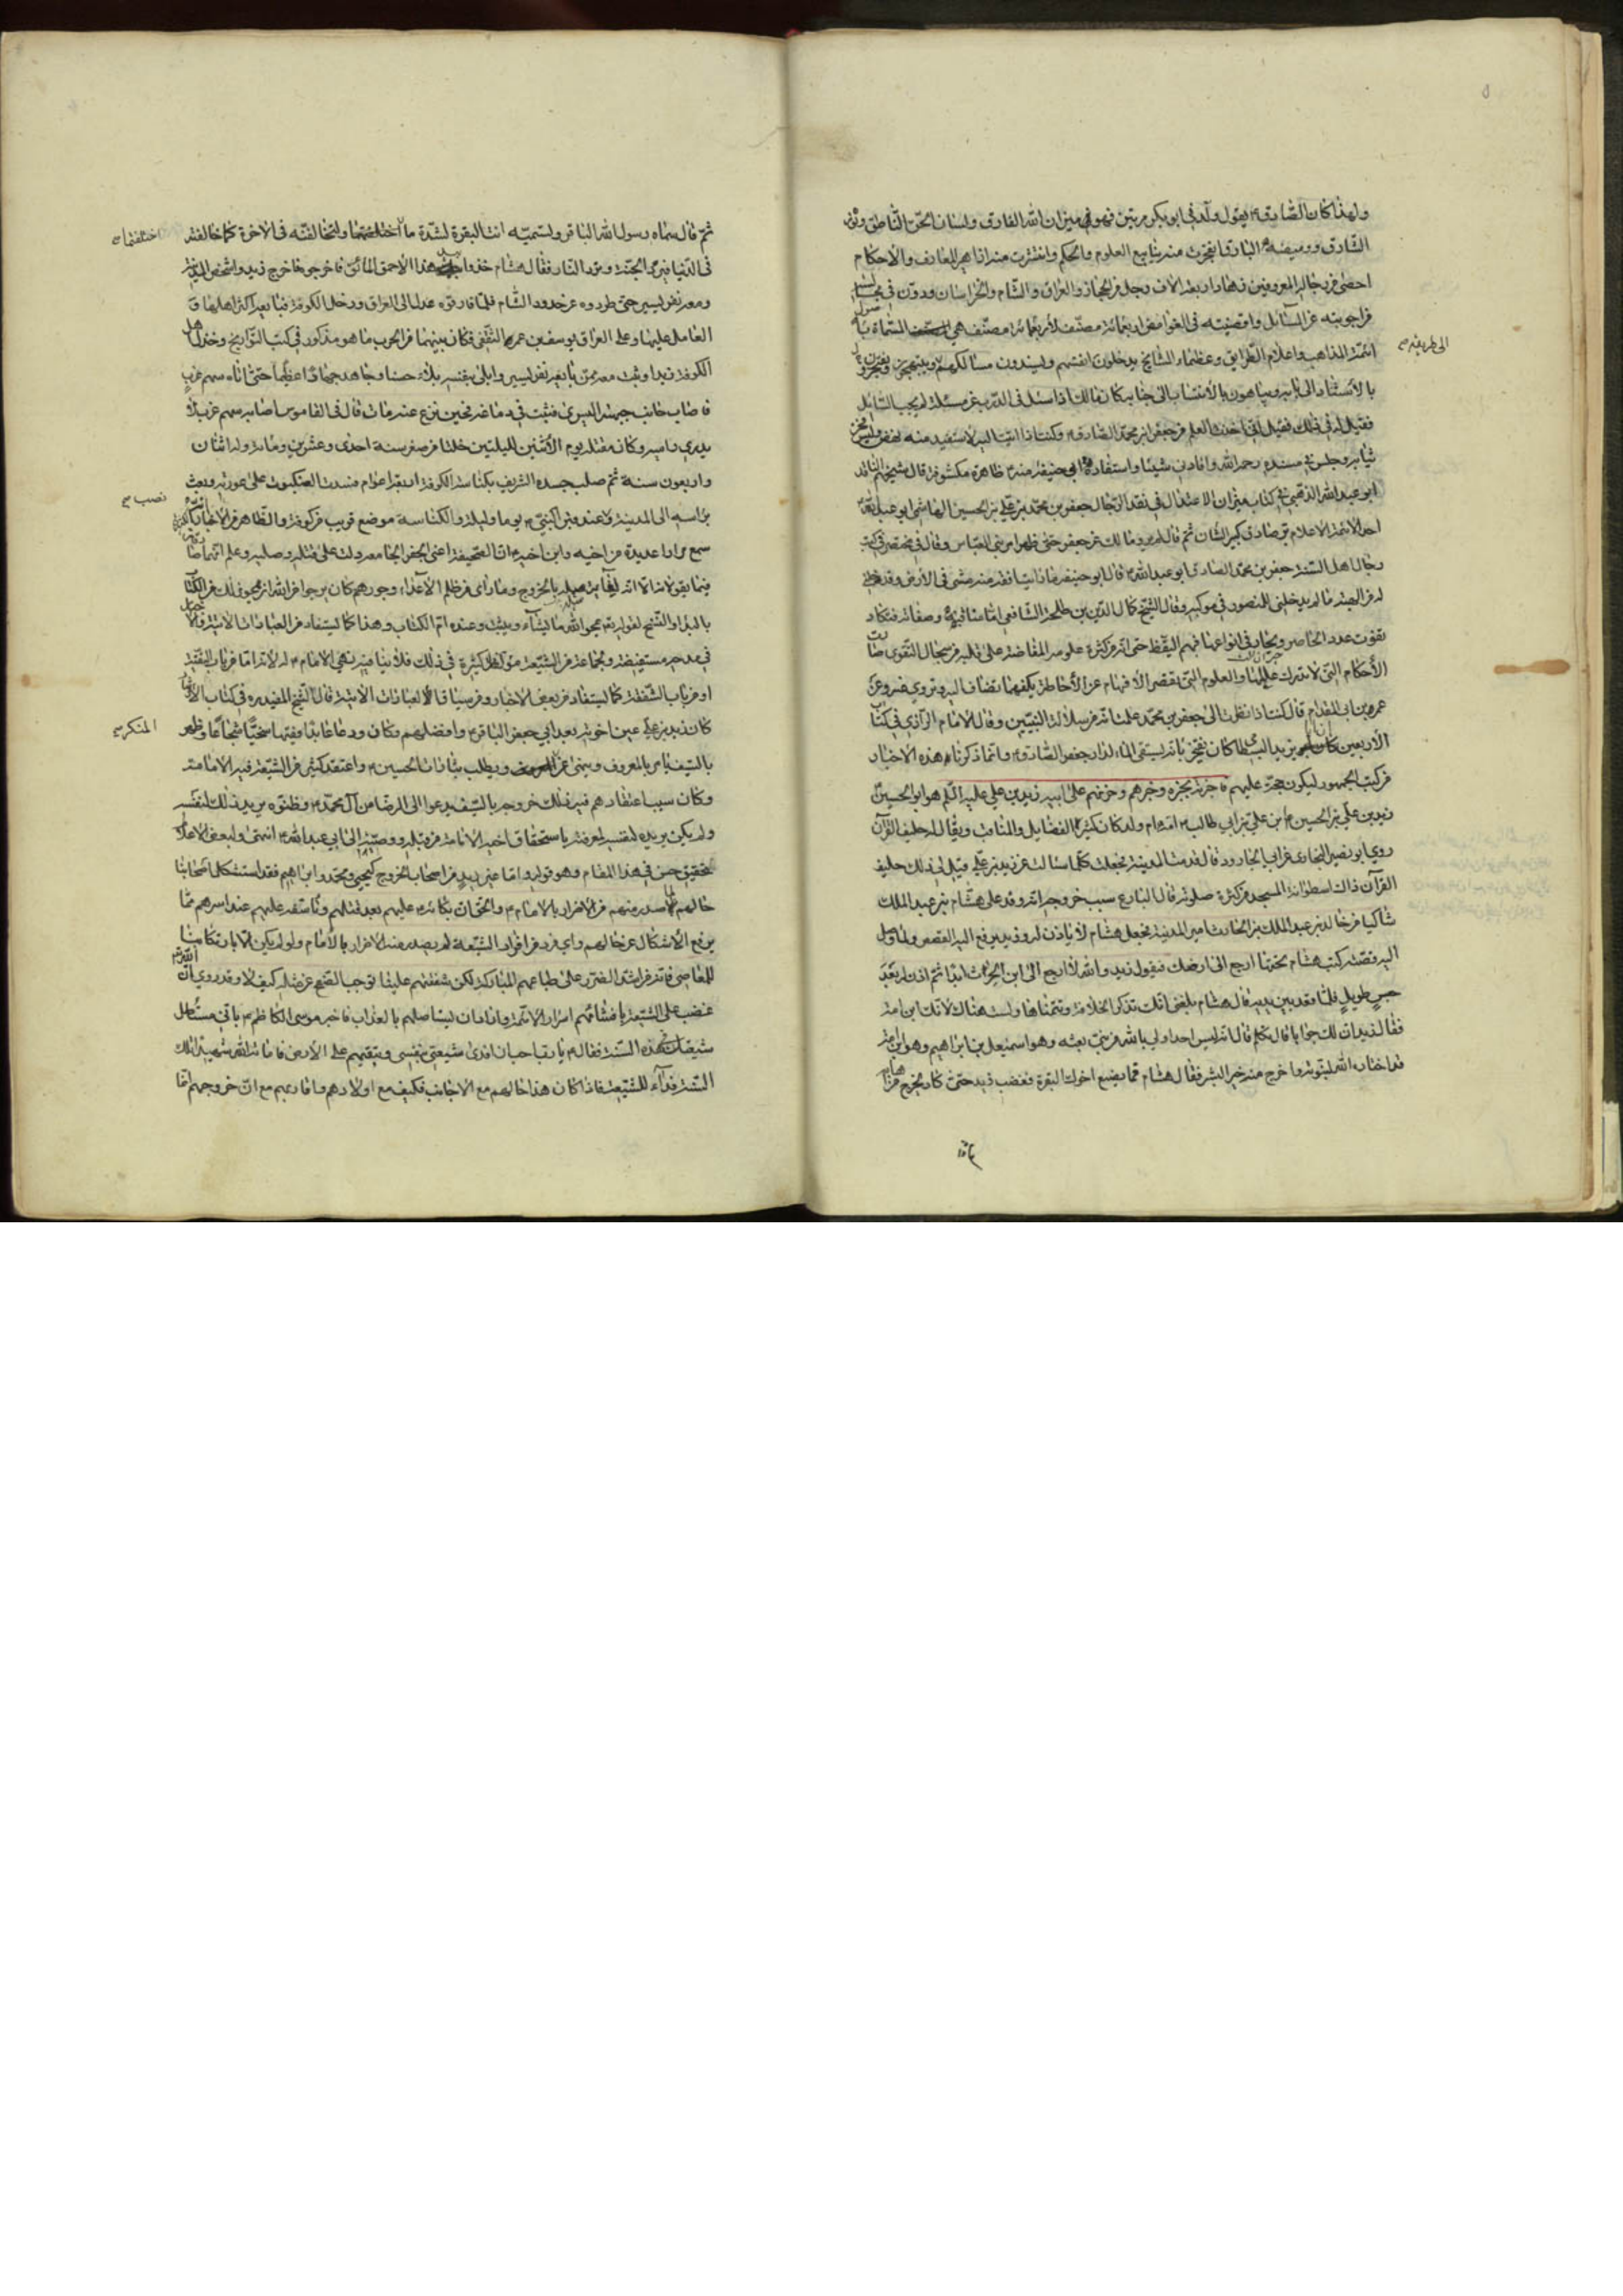 ولهذا كان الصادق ع يقول ولدني ابو بكر مرتين فهو في ميزان الله الفارق ولسان الحق الناطق ونوره
الشارق ووميضه البارق انفجرت منه ينابيع العلوم والحكم وانتشرت منه ازاهير المعارف والاحكام
احصى من رجاله المعروفين زهاء اربعة الاف رجل من الحجاز والعراق والشام والخراسان ودون في مجلسه
من اجوبته عن المسائل واقضيته في الغوامض اربعمائة مصنف لأربعمائة مصنف هي المسماة باصول
ائمة المذاهب واعلام الطرايق وعظماء المشايخ يدخلون انفسهم ويسندون مسالكهم
الى طريقه صح
بالاستناد الى بابه ويباهون بالانتساب الى جنابه كان مالك اذا سئل في الدرس عن مسئلة لم يجب السائل
فقيل له في ذلك فقال اني اخذت العلم من جعفر بن محمد الصادق ع وكنت اذا اتيت اليه لاستفيد منه نهض ولبس افخر
ثيابه وجلس في مسنده رحمه الله وافادني شيئا واستفادة ابي حنيفة منه ع ظاهرة مكشوفة قال شيخهم الناقد
ابو عبد الله الذهبي في كتاب ميزان الاعتدال في نقد الرجال جعفر بن محمد بن علي بن الحسين الهاشمي ابو عبد الله
احد الائمة الاعلام بر صادق كبير الشان ثم قال لم يرو مالك عن جعفر حتى ظهر امر بني العباس وقال في مختصر في كتب
رجال اهل السنة جعفر بن محمد الصادق ابو عبد الله ع قال ابو حنيفة ما رايت افقه منه مشى في الأرض وقد دخلني
له من الهيبة ما لم يدخلني للمنصور في موكبه وقال الشيخ كمال الدين بن طلحة الشافعي اما مناقبه وصفاته فتكاد
تفوت عدد الحاصر ويحار في انواعها فهم اليقظ حتى انه من كثرة علومه المفاضة على قلبه من سجال التقوى صارت
الأحكام التي لا تدرك عللها والعلوم التي تقصر الأفهام عن الأحاطة بكلفهما تضاف اليه وتروى عنه وعن
عمرو بن ابي المقدام قال كنت اذا نظرت الى جعفر بن محمد علمت انه من سلالة النبيين وقال الامام الرازي في كتاب
الأربعين كان ابو يزيد البسطامي كان يفتخر بانه يستقي الماء لدار جعفر الصادق ع وانما ذكرنا هذه الاخبار
من كتب الجمهور ليكون حجة عليهم فاجزته بجزه وخبرهم وحزنهم على ابيه زيد بن علي عليه السلم هو ابو الحسين
زيد بن علي بن الحسين بن علي بن ابي طالب ع امه ام ولد كان كثير الفضايل والمناقب ويقال له حليف القرآن
روى ابو نصير البخاري عن ابي الجارود قال قدمت المدينة فجعلت كلما سالت عن زيد بن علي قيل لي ذلك حليف
القرآن ذاك اسطوانة المسجد من كثرة صلوته قال البارع سبب خروجه انه وفد على هشام بن عبد الملك
شاكيا من خالد بن عبد الملك بن الحارث امير المدينة فجعل هشام لا ياذن له وزيد يرفع اليه القصص ولما وصل
اليه قصته كتب هشام تحتها ارجع الى ارضك فيقول زيد والله لا ارجع الى ابن الحرث ابدا ثم اذن له بعد
حبس طويل فلما قعد بين يديه قال هشام بلغني انك تذكر الخلافة وتتمناها ولست هناك لانك ابن امة
فقال زيد ان لك جوابا قال تكلم قال انه ليس احد اولى بالله من نبي بعثه وهو اسمعيل بن ابراهيم وهو ابن امة
قد اختاره الله لنبوته واخرج منه خير البشر فقال هشام فما يصنع اخوك البقرة فغضب زيد حتى كاد يخرج من اهابه
ثم قال سماه رسول الله الباقر وتسميه انت البقرة لشدة ما اختلفتما ولتخالفنه في الاخرة كما خالفته
اختلفتما صح
في الدنيا فيرد الجنة وترد النار فقال هشام خذوا بيد هذا الاحمق المائق فاخرجوه فاخرج زيد واشخص الى المدينة
ومعه نفر يسير حتى طردوه عن حدود الشام فلما فارقوه عدل الى العراق ودخل الكوفة فبايعه اكثر اهلها و
العامل عليها وعلى العراق يوسف بن عمر الثقفي فكان بينهما من الحرب ما هو مذكور في كتب التواريخ وخذل اهل
الكوفة زيدا وثبت معه ممن بايعه نفر يسير وابلى بنفسه بلاء حسنا وجاهد جهادا عظيما حتى اتاه سهم غرب
فاصاب جانب جبهته اليسرى فثبت في دماغه فحين نزع عنه مات قال في القاموس اصابه سهم غرب لا
يدرى راميه وكان مقتله يوم الأثنين لليلتين خلتا من صفر سنة احدى وعشرين ومائة وله اثنان
واربعون سنة ثم صلب جسده الشريف بكناسة الكوفة اربعة اعوام فسدت العنكبوت على عورته وبعث
براسه الى المدينة ونصب عند قبر النبي ع يوما وليلة والكناسة موضع قريب من كوفة والظاهر من الاخبار
نصب صح
سمع مرارا عديدة من اخيه وابن اخيه ع ان الصحيفة اعني الجفر الجامعة دلت على قتله وصلبه وعلم انهما صادقان
فيما يقولانه الا انه لم يعبأ بالخروج وما راى من ظلم الأعداء وجورهم كان يرجوا من الله ان يمحو ذلك من الكتاب
بالبداء والنسخ لقوله تع يمحو الله ما يشاء ويثبت وعنده ام الكتاب وهذا كما يستفاد من العبارات الآتية قال
في مدحه مستفيضة ولجماعة من الشيعة مؤلفات كثيرة في ذلك فلا ينافيه نهي الامام ع له لأنه اما من باب التقية
او من باب الشفقة كما يستفاد من بعض الاخبار ومن سياق العبارات الآتية قال الشيخ المفيد ره في كتاب الارشاد
كان زيد بن علي عين اخوته بعد ابي جعفر الباقر ع وافضلهم وكان ورعا عابدا فقيها سخيا شجاعا وظهر
بالسيف يامر بالمعروف وينهى عن المنكر ويطلب بثارات الحسين ع واعتقد كثير من الشيعة فيه الامامة
المنكر صح
وكان سبب اعتقادهم فيه ذلك خروجه بالسيف يدعوا الى الرضا من آل محمد ع وظنوه يريد بذلك لنفسه
ولم يكن يريده لنفسه لمعرفته باستحقاق اخيه الامامة من قبله ووصيته الى ابي عبد الله ع انتهى ولبعض الاعلام
تحقيق حسن في هذا المقام وهو قوله واما غير زيد من اصحاب الخروج كيحيى ومحمد وابراهيم فقد استشكل اصحابنا
حالهم لما صدر منهم من الاضرار بالامام ع والحق ان بكائه ع عليهم بعد قتلهم وتاسفه عليهم عند اسرهم مما
يرفع الأشكال عن حالهم واي فرد من افراد الشيعة لم يصدر منه الاضرار بالأمام ولو لم يكن الا بارتكاب
المعاصي فانه من اشد الضرر على طباعهم المباركة لكن شفقتهم علينا توجب الصفح عن مثله كيف لا وقد روي ان الله
غضب على الشيعة بافشائهم اسرار الائمة واراد ان يستاصلهم بالعذاب فاخبر موسى الكاظم ع باني مستاصل
شيعتك هذه السنة فقال ع يا رب احب ان افدي شيعتي بنفسي وتبقيهم على الارض فاماته الله شهيدا تلك
السنة فداء للشيعة فاذا كان هذا حالهم مع الاجانب فكيف مع اولادهم واقاربهم مع ان خروجهم انما